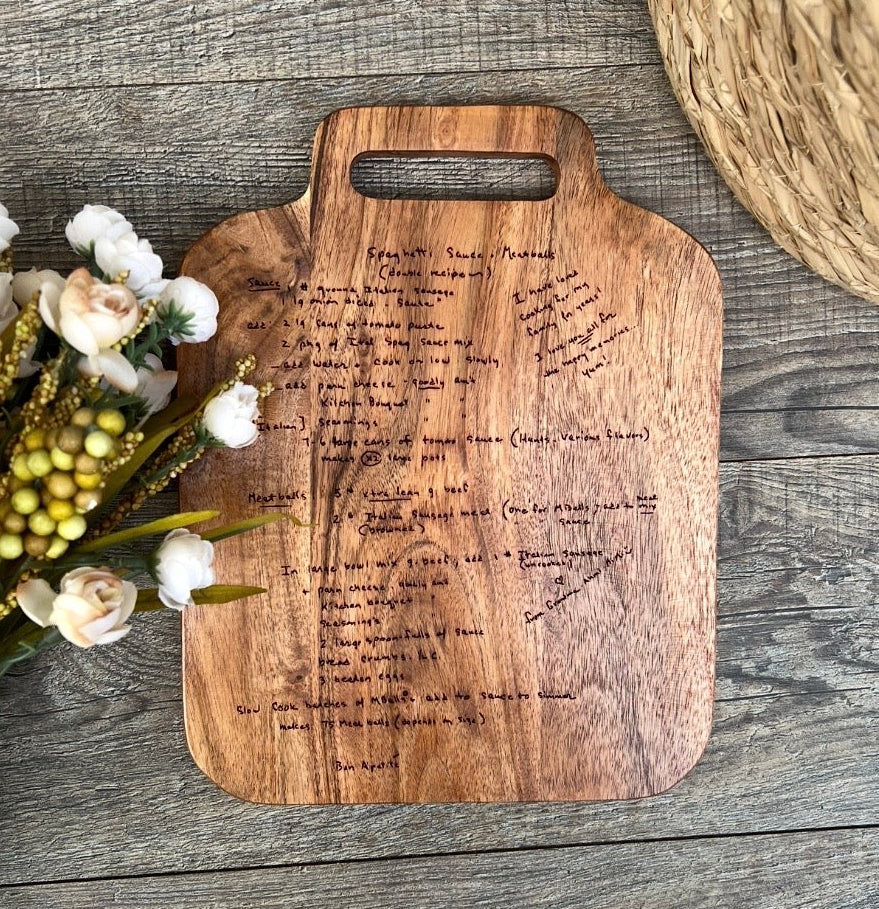 Spaghetti Sauce & Meatballs
(double recipe)
Sauce # ground Italian sausage
1 lg onion diced "Sauce"
I have loved
cooking for my
family for years!
I love you all for
the happy memories...
Yum!
add: 2 lg cans of tomato paste
2 pkg of Ital Spag Sauce mix
- add water & cook on low slowly
- add parm cheese - goodly am't
Kitchen Bouquet
"Italian] seasonings
7-6 large cans of tomato sauce (Hunts, various flavors)
makes x2 large pots
Meatballs 3 # xtra lean g beef
2 # Italian Sausage meat (one for MBalls, add to meat
(browned) sauce mix
In large bowl mix g. beef, add 1 # Italian sausage
(uncooked)
+ parm cheese, goodly amt
Kitchen bouquet
seasonings
2 large spoonfulls of sauce
bread crumbs,
3 beaten eggs
from
Slow cook batches of MBalls add to sauce to simmer
makes 75 Meatballs (depends on size)
Bon Apetite